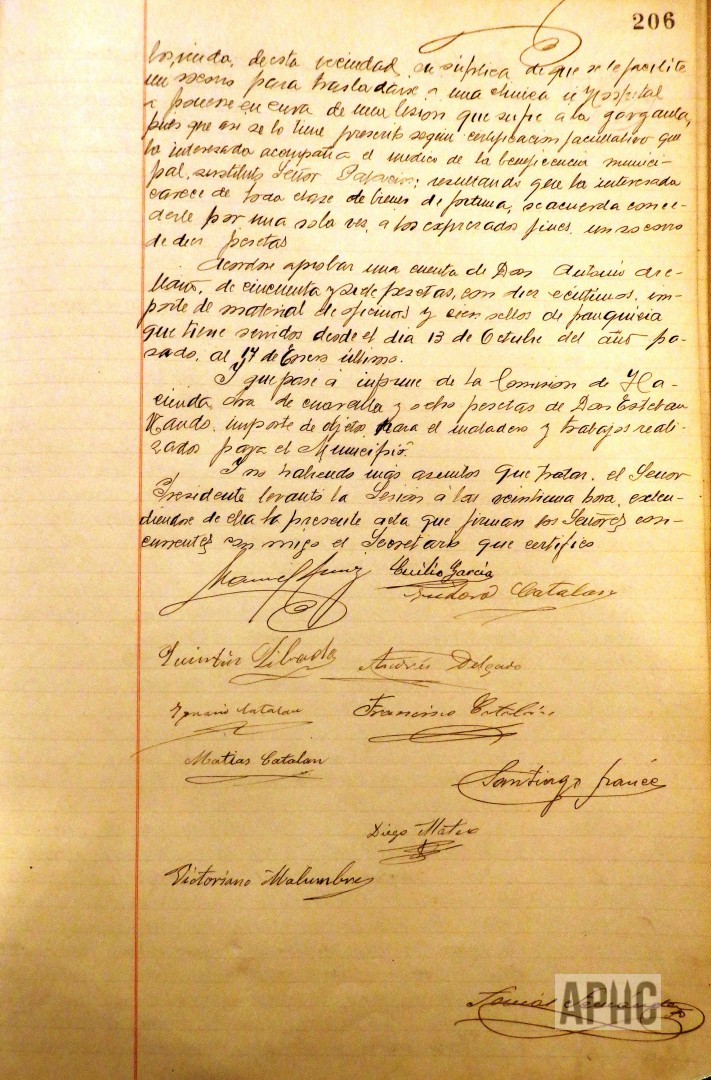 206
los, viuda, de esta vecindad, en súplica de que se le facilite
un socorro para trasladarse a una clinica u Hospital
a ponerse en cura de una lesion que sufre a la garganta,
pues que asi se lo tiene prescrito segun certificacion facultativo que
la interesada acompaña el medico de la beneficencia munici-
pal, sustituto Señor Palacios; resultando que la interesada
carece de toda clase de bienes de fortuna, se acuerda conce-
derle por una sola vez, a los expresados fines, un socorro
de diez pesetas
Acordose aprobar una cuenta de Don Antonio Are-
llano, de cincuenta y siete pesetas, con diez centimos, im-
porte de material de oficinas y cien sellos de franquicia
que tiene servidos desde el dia 13 de Octubre del año pa-
sado, al 17 de Enero último.
Y que pase à informe de la Comision de Ha-
cienda otra de cuarenta y ocho pesetas de Don Esteban
importe de objetos para el matadero y trabajos reali-
zados para el Municipio.
Y no habiendo más asuntos que tratar, el Señor
Presidente levantó la Sesion à las veintiuna hora, exten-
diendose de ella la presente acta que firman los Señores con-
currentes con migo el Secretario que certifico
Manuel Cecilio García
Isidoro Catalan
Quintín Andrés Delgado
Ignacio Catalan Francisco Catalán
Matias Catalan
Santiago francés
Diego Mateo
Victoriano Malumbres
APHC